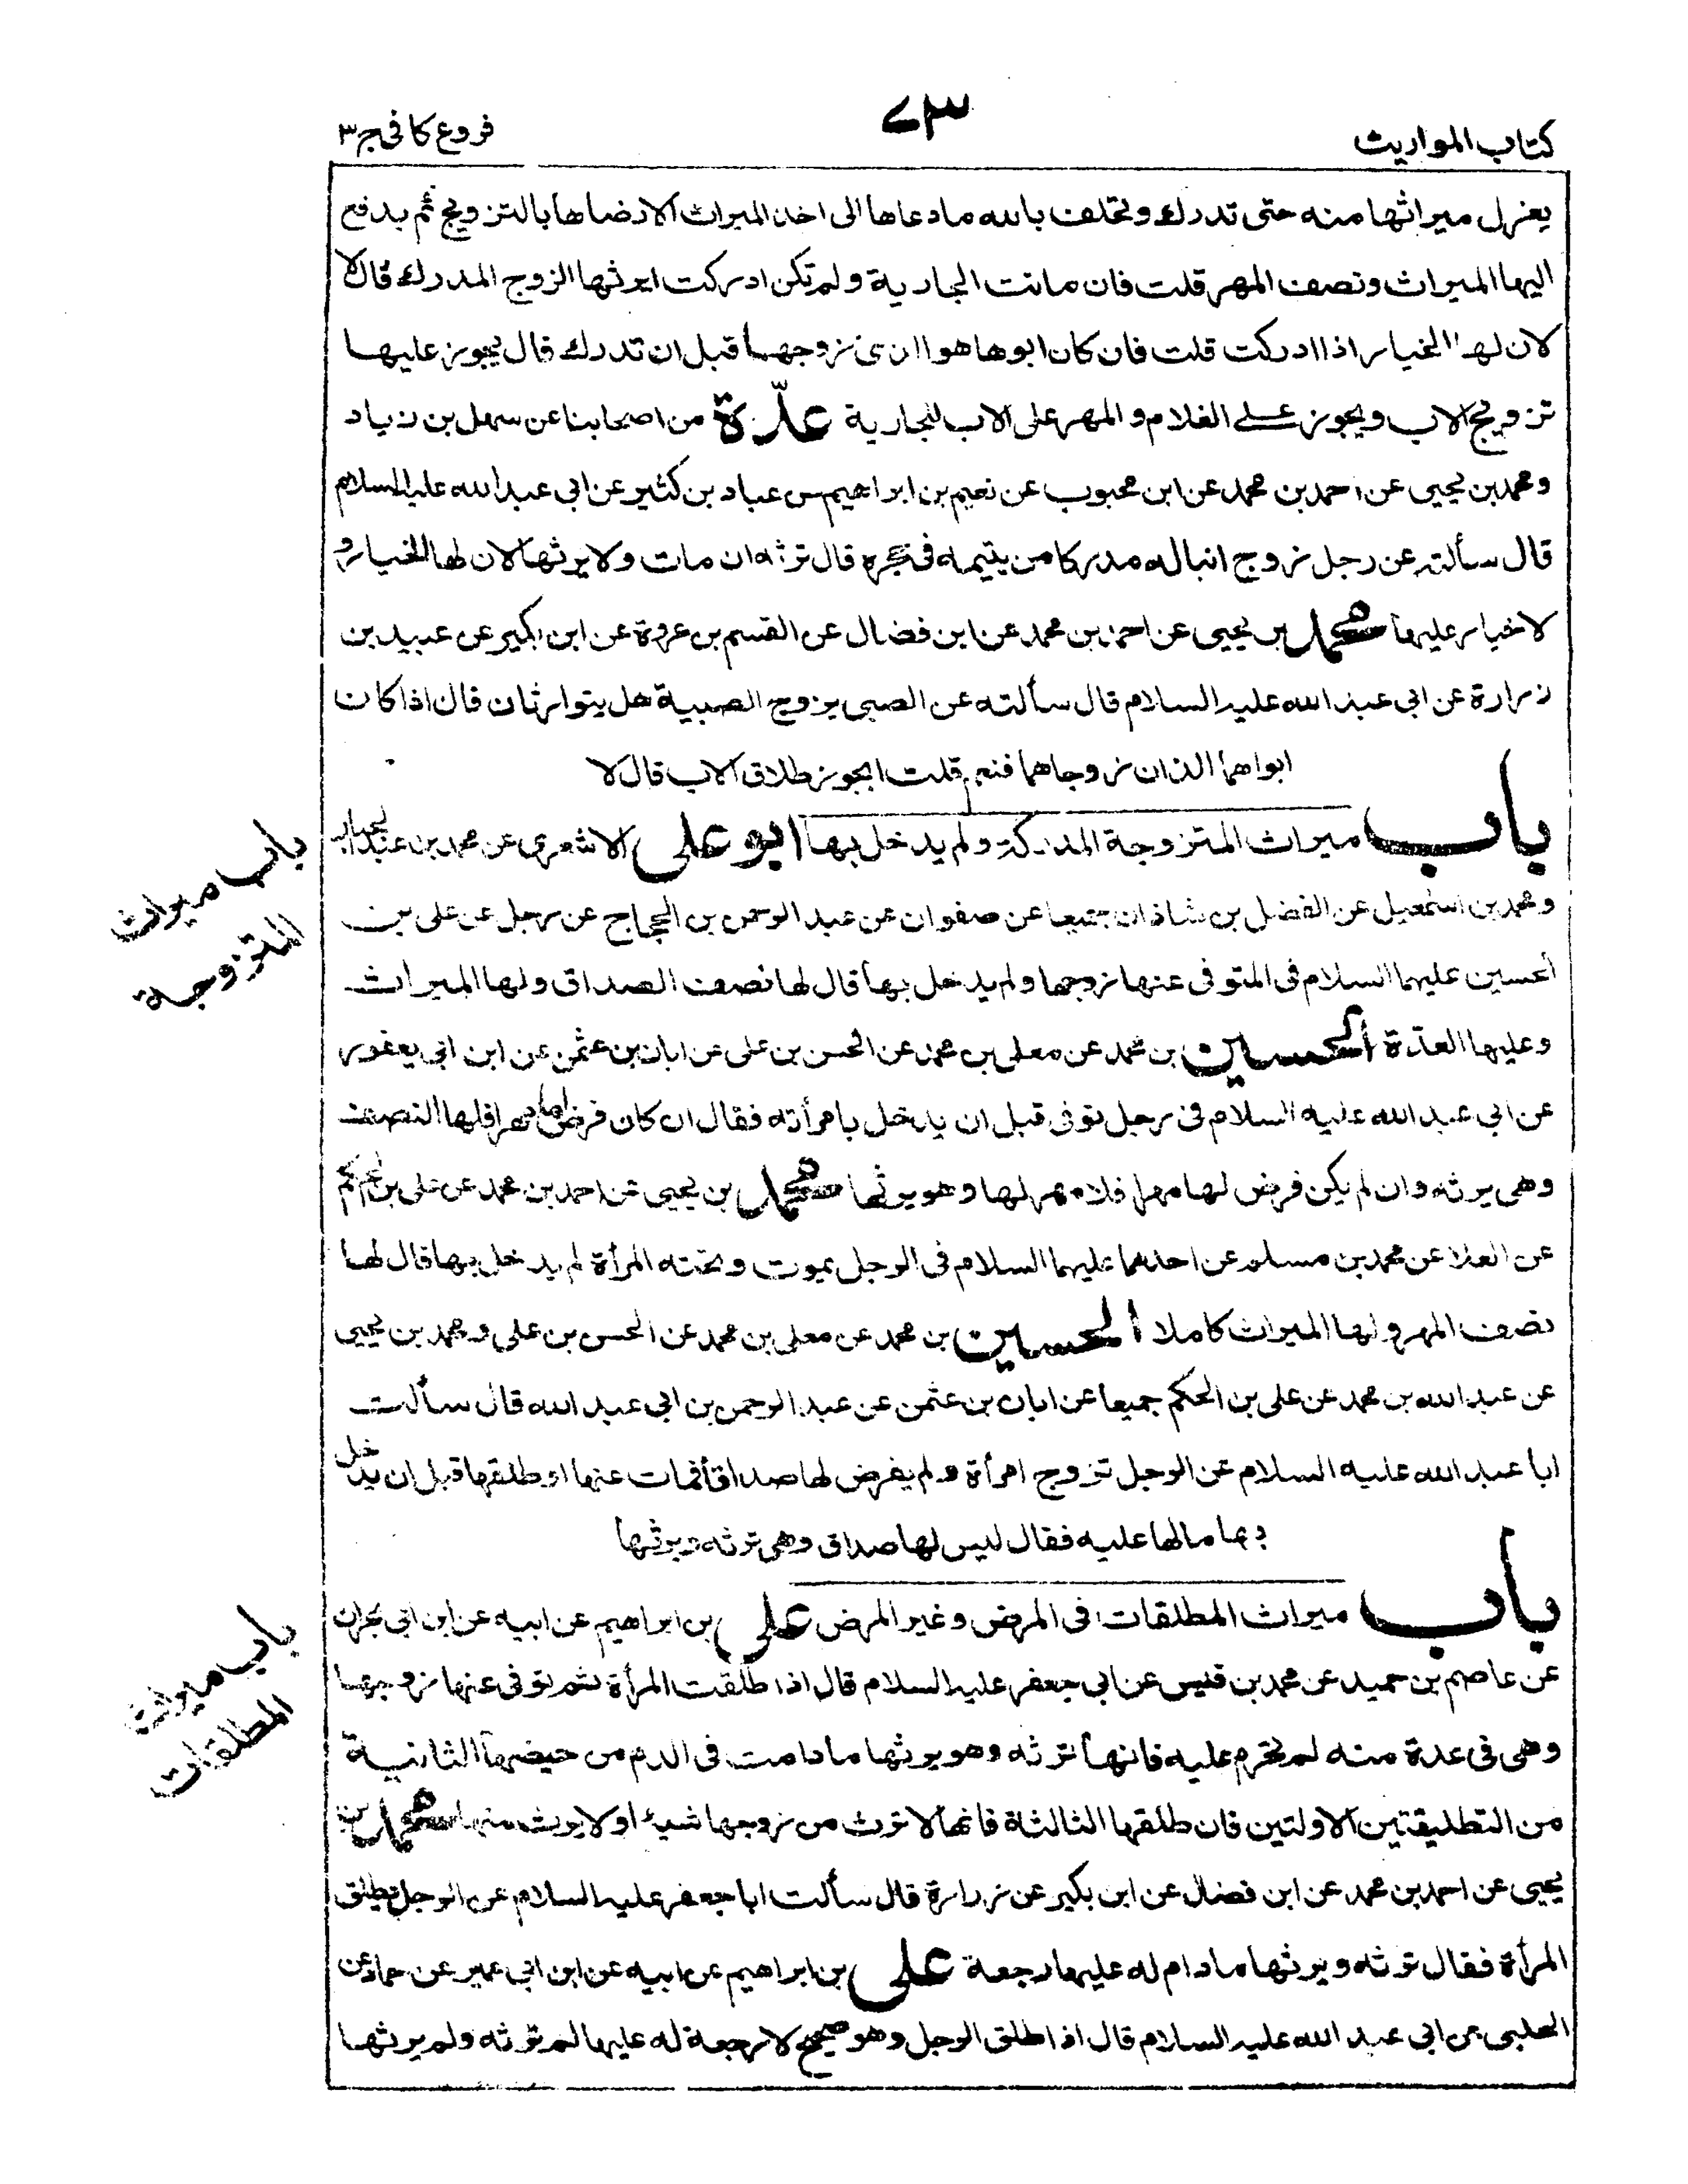 كتاب المواريث
٧٣
فروع كافى ج ٣
يعزل ميراثها منه حتى تدرك وتحلف بالله ما دعاها الى اخذ الميراث الا رضاها بالتزويج ثم يدفع
اليها الميراث ونصف المهر قلت فان ماتت الجارية ولم تكن ادركت ايرثها الزوج المدرك قال لا
لان لها الخيار اذا ادركت قلت فان كان ابوها هو الذى زوجها قبل ان تدرك قال يجوز عليها
تزويج الاب ويجوز على الغلام و المهر على الاب للجارية عدّة من اصحابنا عن سهل بن زياد
ومحمد بن يحيى عن احمد بن محمد عن ابن محبوب عن نعيم بن ابراهيم عن عباد بن كثير عن ابى عبد الله عليه السلام
قال سألته عن رجل زوج ابنا له مدركا من يتيمة فى حجره قال ترثه ان مات ولا يرثها لان لها الخيار و
لا خيار عليها محمد بن يحيى عن احمد بن محمد عن ابن فضال عن القسم بن عروة عن ابن بكير عن عبيد بن
زرارة عن ابى عبد الله عليه السلام قال سألته عن الصبى يزوج الصبية هل يتوارثان قال اذا كان
ابواهما اللذان زوجاهما فنعم قلت ايجوز طلاق الاب قال لا
باب ميراث المتزوجة المدركة ولم يدخل بها ابو على الاشعرى عن محمد بن عبد الجبار
باب ميراث
المتزوجة
ومحمد بن اسمعيل عن الفضل بن شاذان جميعا عن صفوان عن عبد الرحمن بن الحجاج عن رجل عن على بن
الحسين عليهما السلام فى المتوفى عنها زوجها ولم يدخل بها قال لها نصف الصداق ولها الميراث
وعليها العدة الحسين بن محمد عن معلى بن محمد عن الحسن بن على عن ابان بن عثمن عن ابن ابى يعفور
عن ابى عبد الله عليه السلام فى رجل توفى قبل ان يدخل بامرأته فقال ان كان فرض لها مهرا فلها النصف
وهى يرثه وان لم يكن فرض لها مهرا فلا مهر لها وهو يرثها محمد بن يحيى عن احمد بن محمد عن على بن الحكم
عن العلا عن محمد بن مسلم عن احدهما عليهما السلام فى الرجل يموت وتحته المرأة لم يدخل بها قال لها
نصف المهر ولها الميراث كاملا الحسين بن محمد عن معلى بن محمد عن الحسن بن على ومحمد بن يحيى
عن عبد الله بن محمد عن على بن الحكم جميعا عن ابان بن عثمن عن عبد الرحمن بن ابى عبد الله قال سألت
ابا عبد الله عليه السلام عن الرجل تزوج امرأة ولم يفرض لها صداقا فمات عنها او طلقها قبل ان يدخل
بها ما لها عليه فقال ليس لها صداق وهى ترثه ويرثها
باب ميراث المطلقات فى المرض وغير المرض على بن ابراهيم عن ابيه عن ابن ابى نجران
باب ميراث
المطلقات
عن عاصم بن حميد عن محمد بن قيس عن ابى جعفر عليه السلام قال اذا طلقت المرأة ثم توفى عنها زوجها
وهى فى عدة منه لم تحرم عليه فانها ترثه وهو يرثها ما دامت فى الدم من حيضها الثانية
من التطليقتين الاولتين فان طلقها الثالثة فانها لا ترث من زوجها شيئا ولا يرث منها محمد بن
يحيى عن احمد بن محمد عن ابن فضال عن ابن بكير عن زرارة قال سألت ابا جعفر عليه السلام عن الرجل يطلق
المرأة فقال ترثه ويرثها ما دام له عليها رجعة على بن ابراهيم عن ابيه عن ابن ابى عمير عن حماد عن
الحلبى عن ابى عبد الله عليه السلام قال اذا طلق الرجل وهو صحيح لا رجعة له عليها لم ترثه ولم يرثها